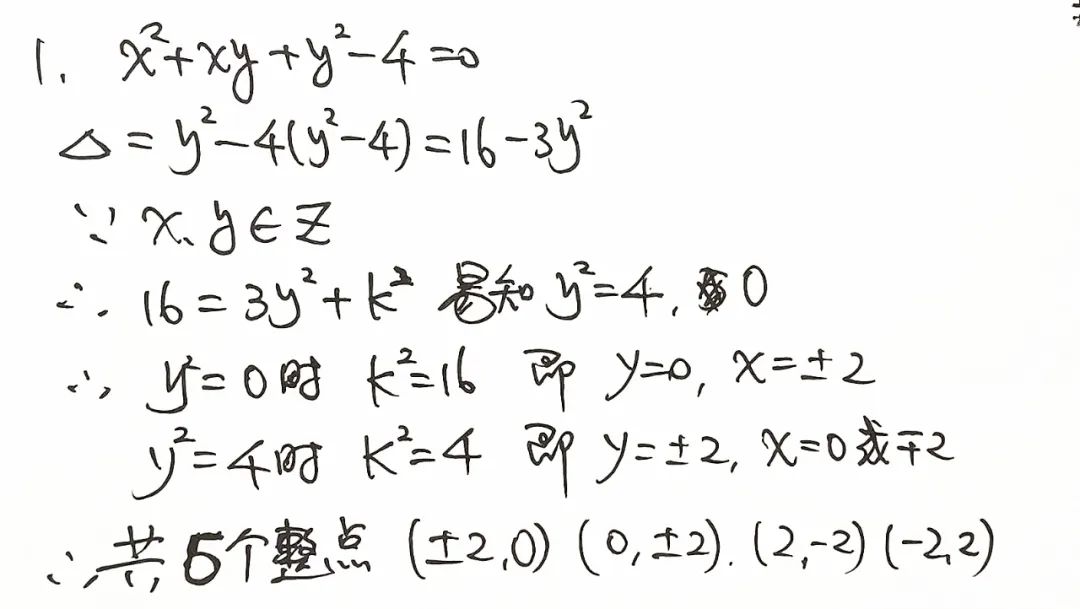 1. x²+xy+y²-4=0
△=y²-4(y²-4)=16-3y²
∵ x、y∈Z
∴ 16=3y²+k² 易知 y²=4, 0
∴ y²=0时 k²=16 即 y=0, x=±2
y²=4时 k²=4 即 y=±2, x=0或∓2
∴共6个整点 (±2,0) (0,±2). (2,-2) (-2,2)